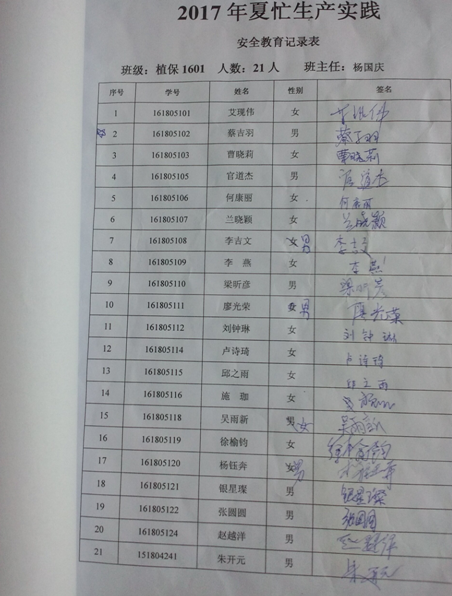 2017年夏忙生产实践
安全教育记录表
班级：植保1601 人数：21人 班主任：杨国庆
序号 学号 姓名 性别 签名
1 161805101 艾现伟 女
☆2 161805102 蔡吉羽 男 蔡吉羽
3 161805103 曹晓莉 女 曹晓莉
4 161805105 官道杰 男 官道杰
5 161805106 何康丽 女 何康丽
6 161805107 兰晓颖 女 兰晓颖
7 161805108 李吉文 女 男 李吉文
8 161805109 李燕 女 李燕
9 161805110 梁昕彦 男
10 161805111 廖光荣 女 男 廖光荣
11 161805112 刘钟琳 女 刘钟琳
12 161805114 卢诗琦 女 卢诗琦
13 161805115 邱之雨 女 邱之雨
14 161805116 施珈 女
15 161805118 吴雨新 男 女 吴雨新
16 161805119 徐榆钧 女
17 161805120 杨钰奔 女 男
18 161805121 银星璨 男 银星璨
19 161805122 张圆圆 男 张圆圆
20 161805124 赵越洋 男
21 151804241 朱开元 男 朱开元